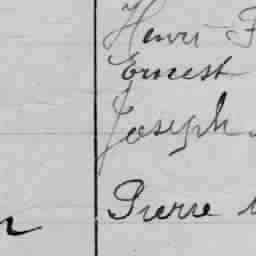 Henri
Ernest
Joseph
Pierre